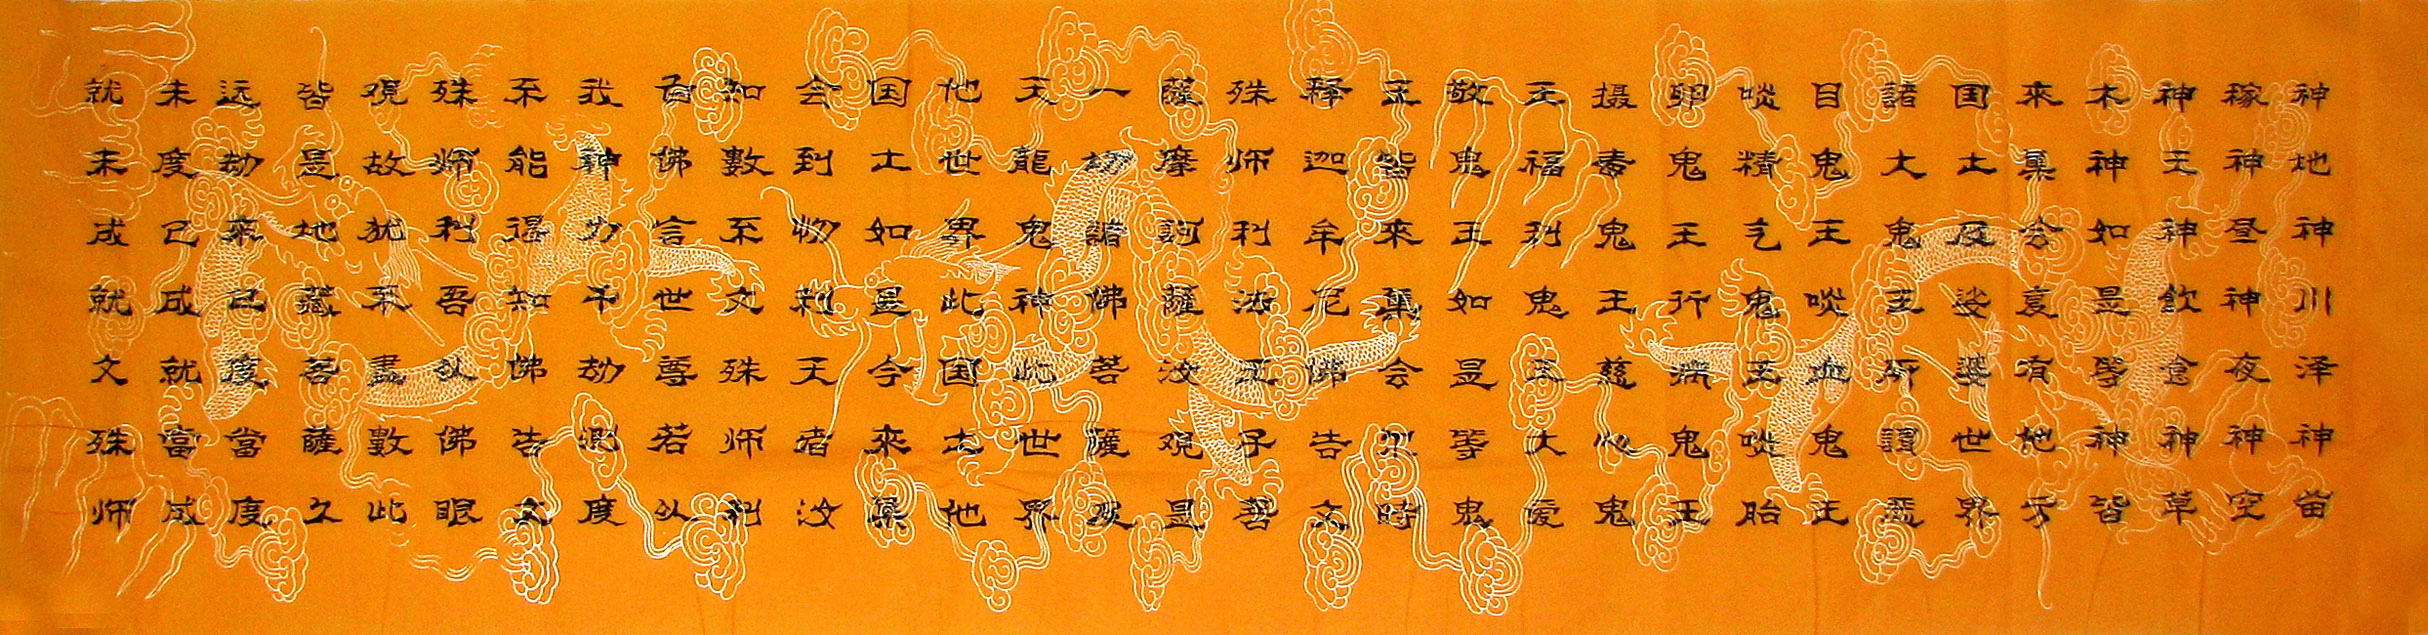 神地神川泽神苗
稼神昼神夜神空
神王神飲食神草
木神如是等神皆
来集会复有他方
国土及娑婆世界
諸大鬼王所謂恶
目鬼王啖血鬼王
啖精气鬼王啖胎
卵鬼王行病鬼王
摄毒鬼王慈心鬼
王福利鬼王大爱
敬鬼王如是等鬼
王皆来集会尔時
释迦牟尼佛告文
殊师利法王子菩
薩摩訶薩汝观是
一切諸佛菩薩及
天龍鬼神此世界
他世界此国土他
国土如是今來集
会到忉利天者汝
知數不文殊师利
白佛言世尊若以
我神力千劫测度
不能得知佛告文
殊师利吾以佛眼
观故犹不盡數此
皆是地藏菩薩久
远劫來已度當度
未度已成就當成
就未成就文殊师